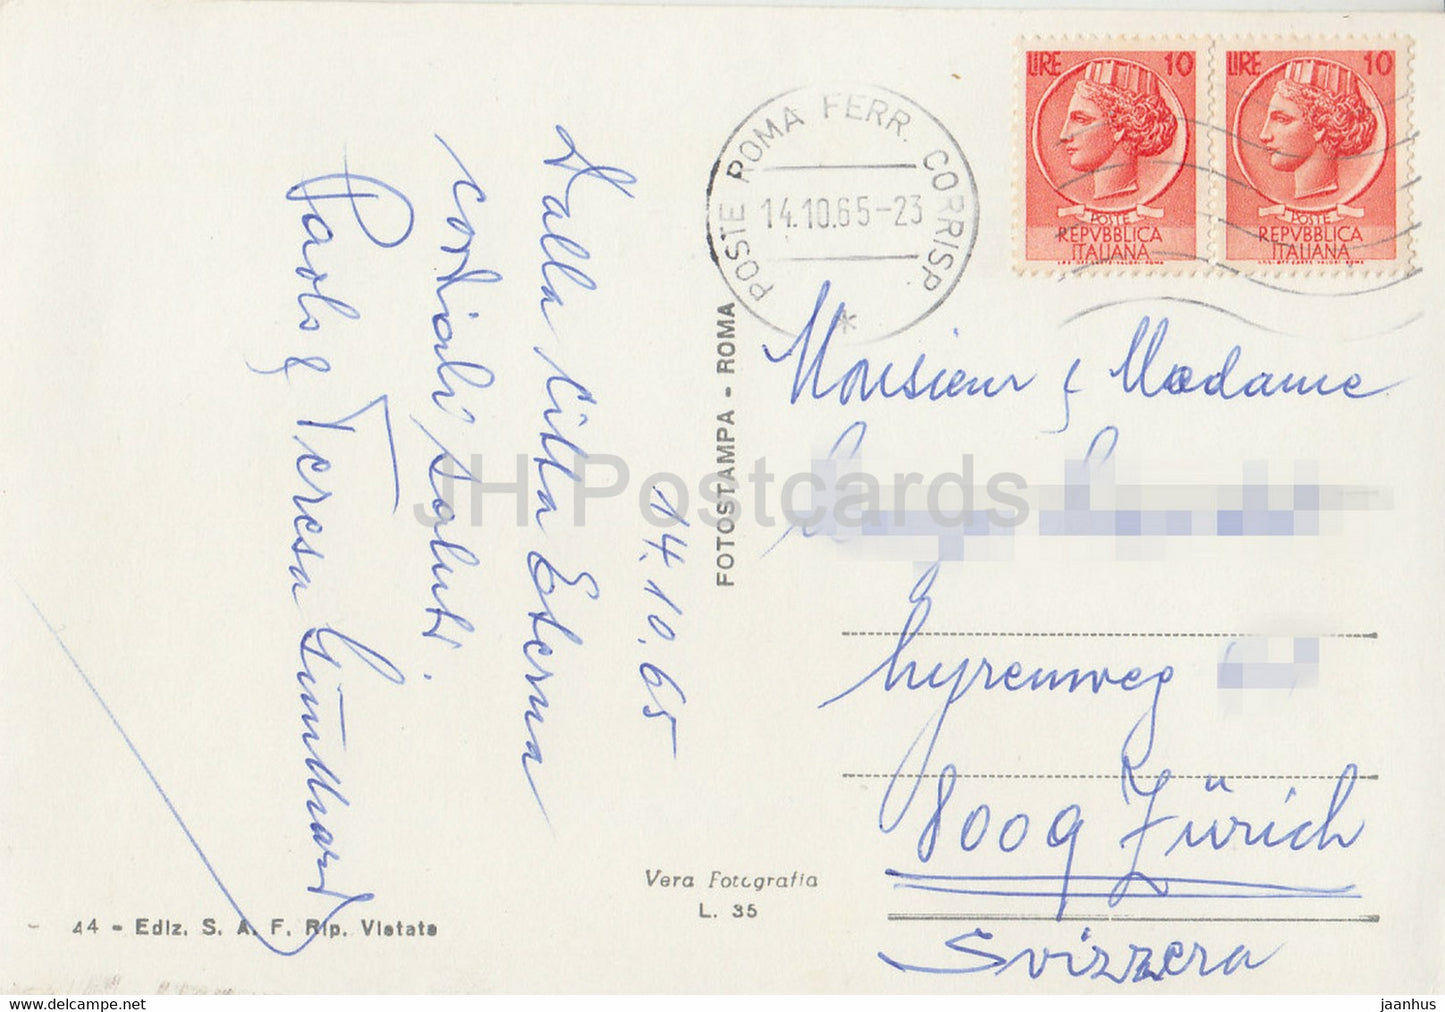 14.10.65
Dalla Città Eterna
cordiali saluti.
Paolo & Teresa
44 - Ediz. S. A. F. Rip. Vietata
FOTOSTAMPA - ROMA
Vera Fotografia
L. 35
POSTE ROMA FERR. CORRISP.
14.10.65-23
*
LIRE 10
POSTE
REPVBBLICA
ITALIANA
LIRE 10
POSTE
REPVBBLICA
ITALIANA
Monsieur & Madame
8009 Zürich
Svizzera
JH Postcards
jaanhus © delcampe.net